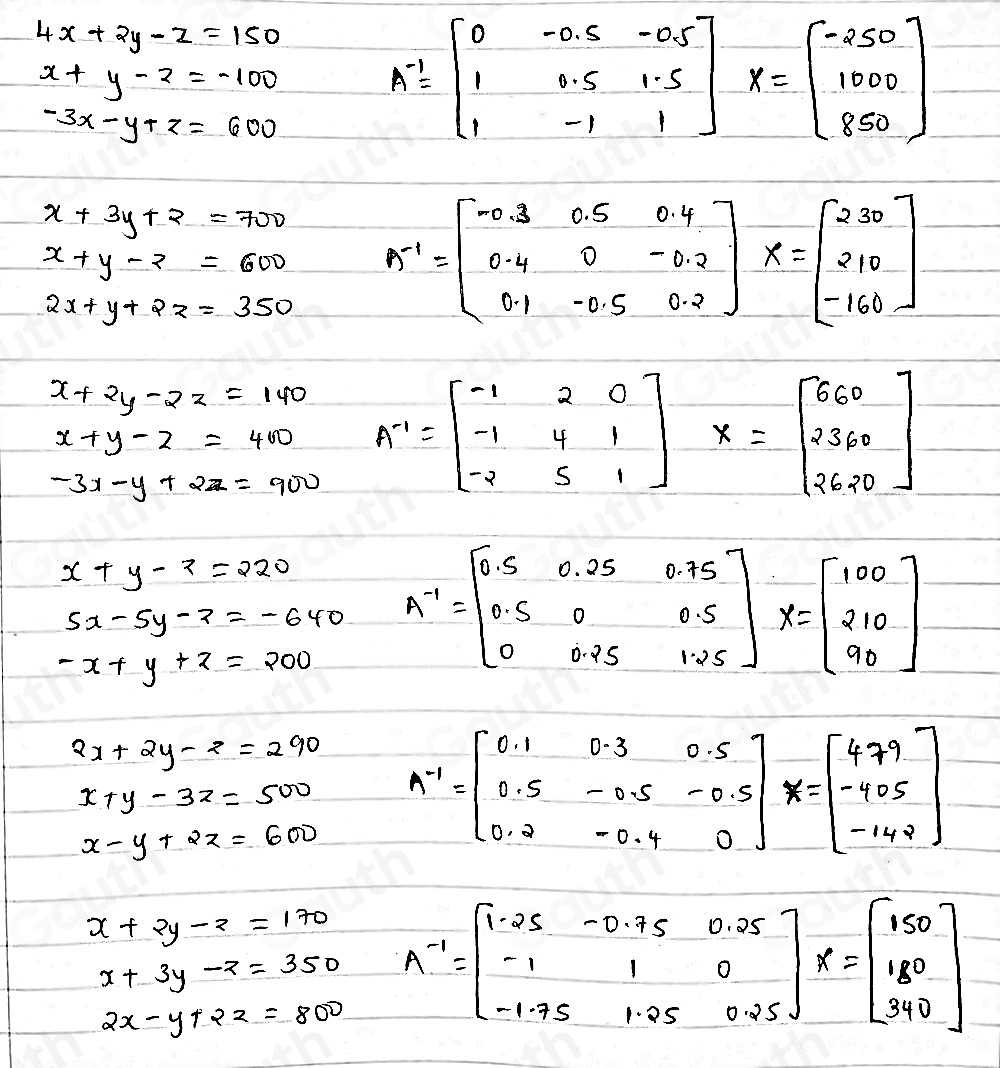 4x + 2y - z = 150
x + y - z = -100
-3x - y + z = 600
A⁻¹ = [0 -0.5 -0.5
1 0.5 1.5
1 -1 1]
X = [-250
1000
850]
x + 3y + z = 700
x + y - z = 600
2x + y + 2z = 350
A⁻¹ = [-0.3 0.5 0.4
0.4 0 -0.2
0.1 -0.5 0.2]
X = [230
210
-160]
x + 2y - 2z = 140
x + y - z = 400
-3x - y + 2z = 900
A⁻¹ = [-1 2 0
-1 4 1
-2 5 1]
X = [660
2360
2620]
x + y - z = 220
5x - 5y - z = -640
-x + y + z = 200
A⁻¹ = [0.5 0.25 0.75
0.5 0 0.5
0 0.25 1.25]
X = [100
210
90]
2x + 2y - z = 290
x + y - 3z = 500
x - y + 2z = 600
A⁻¹ = [0.1 0.3 0.5
0.5 -0.5 -0.5
0.2 -0.4 0]
X = [479
-405
-142]
x + 2y - z = 170
x + 3y - z = 350
2x - y + 2z = 800
A⁻¹ = [1.25 -0.75 0.25
-1 1 0
-1.75 1.25 0.25]
X = [150
180
340]